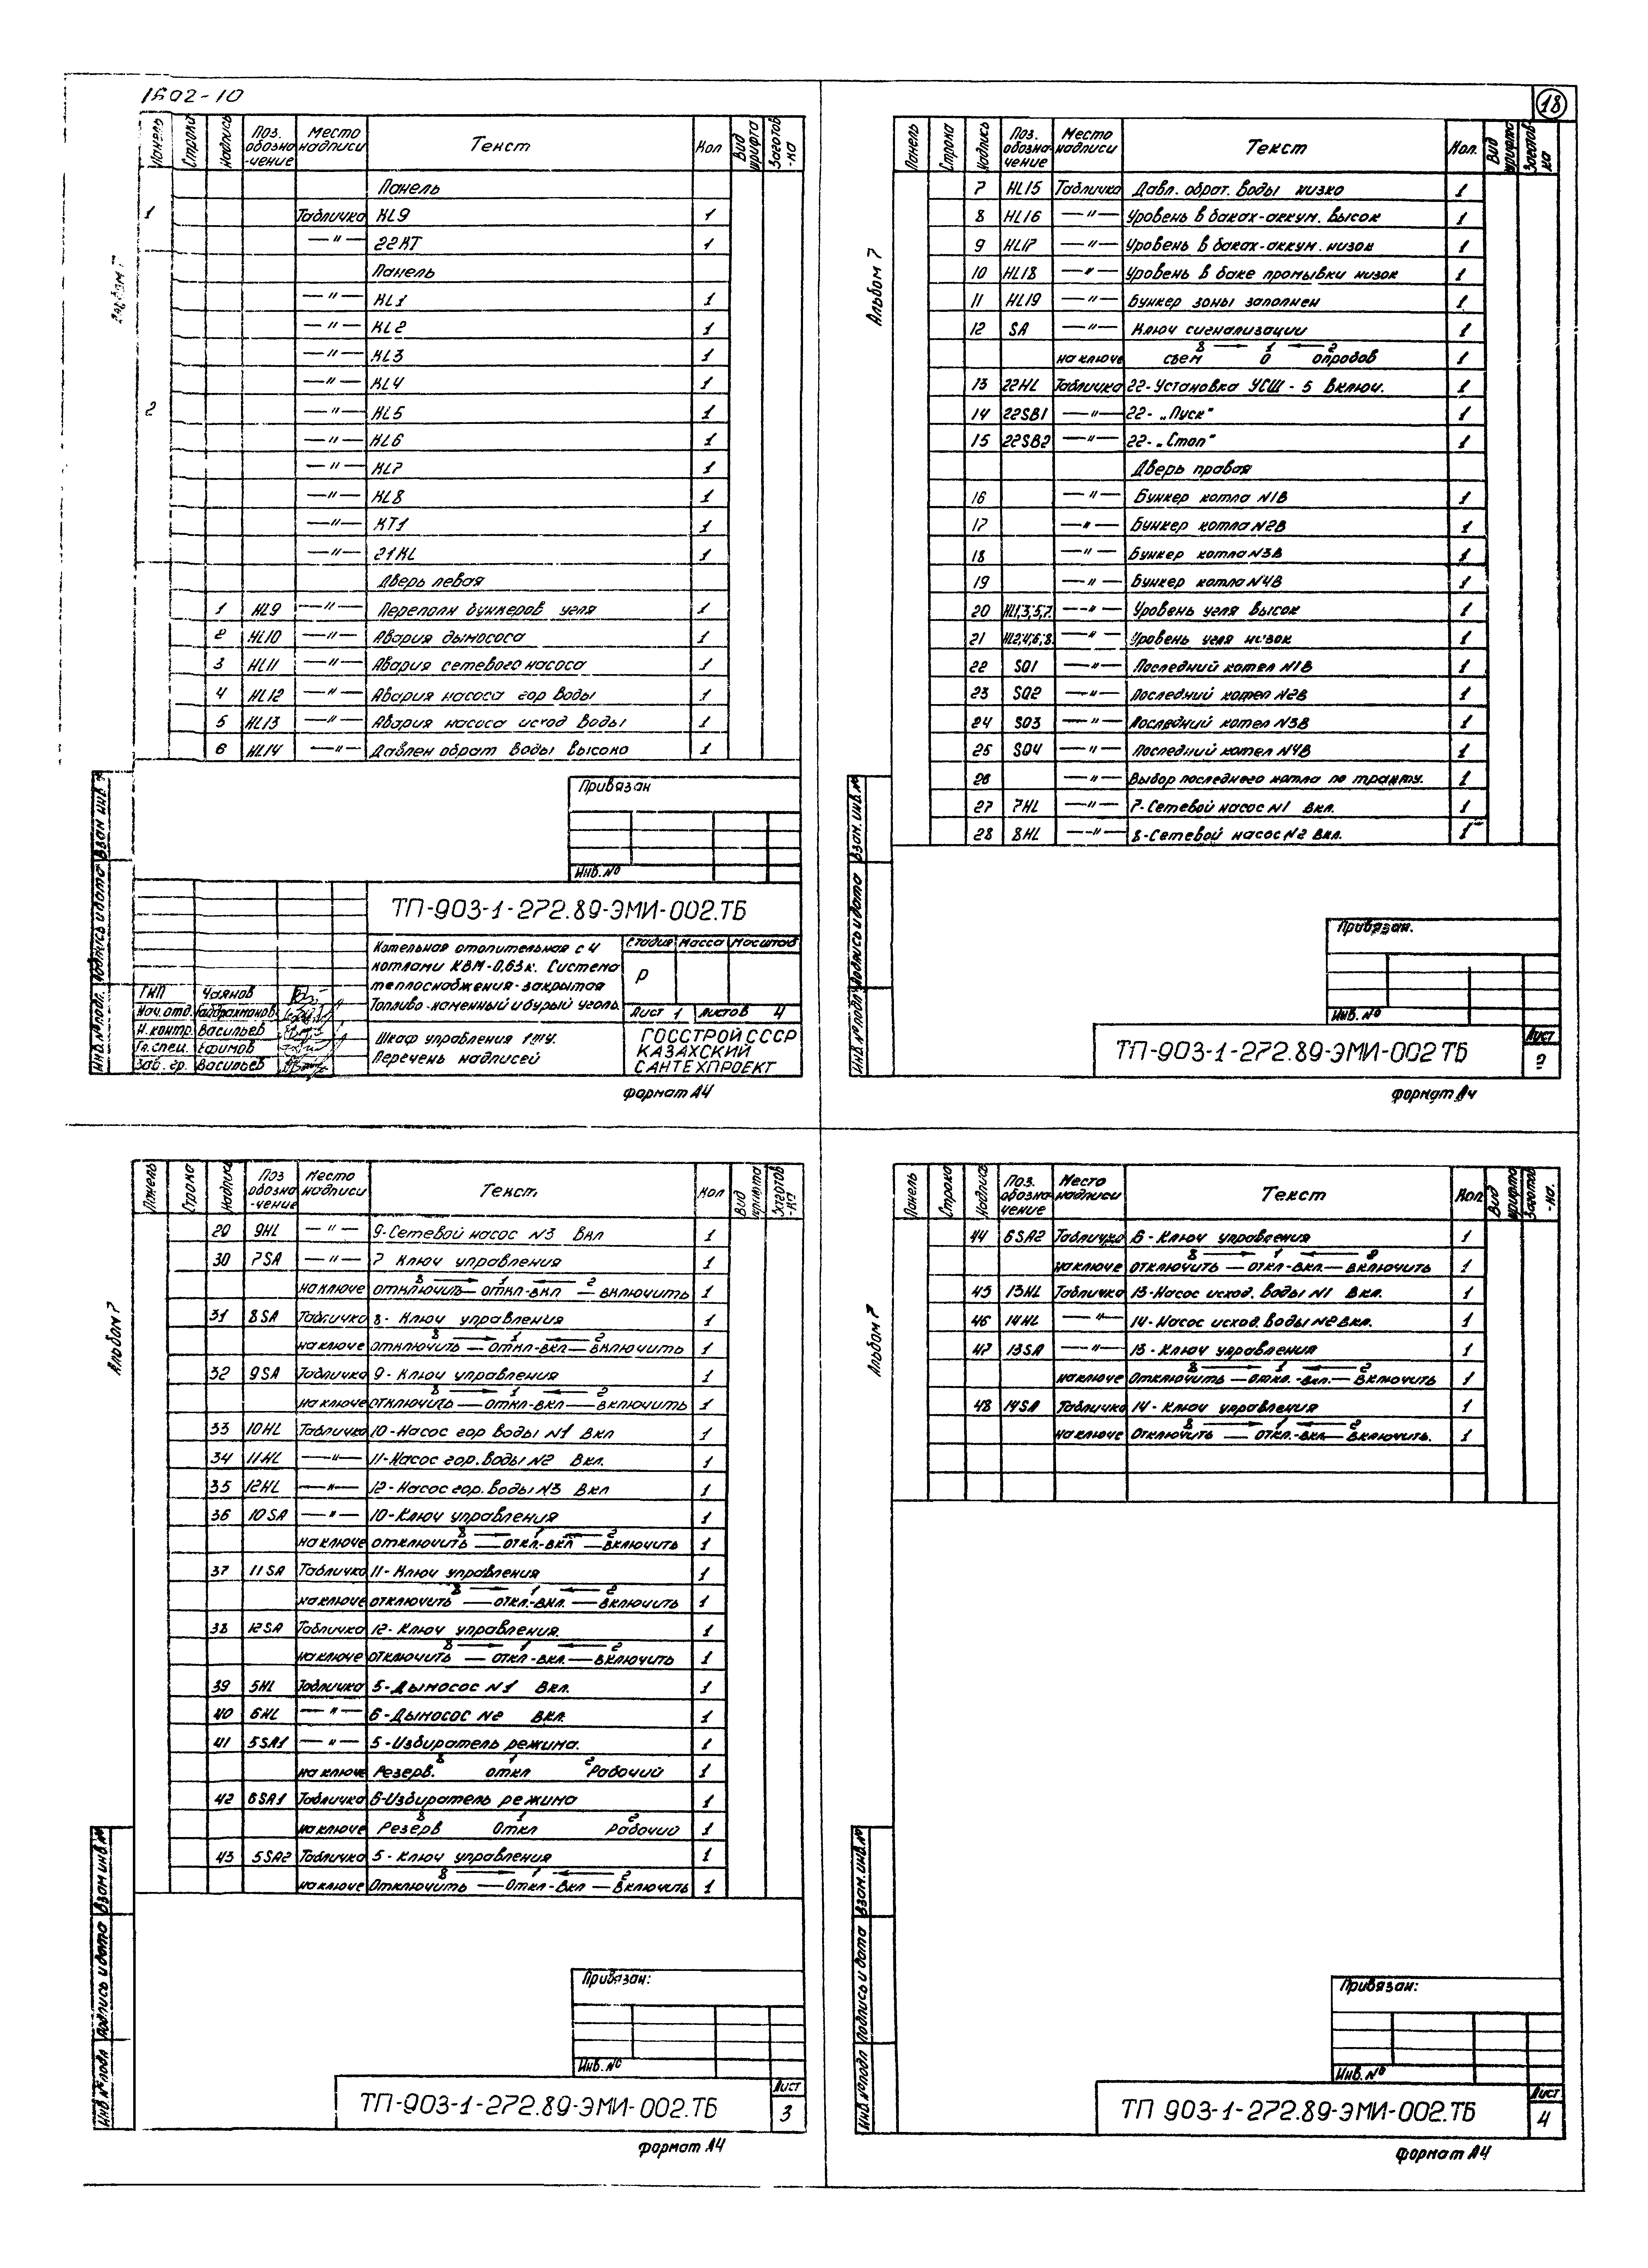 1602-10
18
Альбом 7
Панель Строка Надпись Поз. обозначение Место надписи Текст Кол Вид шрифта Заготовка
Панель
1 Табличка KL9 1
—"— 22KT 1
Панель
—"— KL1 1
—"— KL2 1
—"— KL3 1
—"— KL4 1
2 —"— KL5 1
—"— KL6 1
—"— KL7 1
—"— KL8 1
—"— KT1 1
—"— 21KL 1
Дверь левая
1 HL9 —"— Переполн бункеров угля 1
2 HL10 —"— Авария дымососа 1
3 HL11 —"— Авария сетевого насоса 1
4 HL12 —"— Авария насоса гор воды 1
5 HL13 —"— Авария насоса исход воды 1
6 HL14 —"— Давлен обрат воды высоко 1
Привязан
Инв. №
ТП-903-1-272.89-ЭМИ-002.ТБ
Котельная отопительная с 4
котлами КВМ-0,63к. Система
теплоснабжения-закрытая
Топливо-каменный и бурый уголь.
Стадия Масса Масштаб
Р
Лист 1 Листов 4
ГИП Чаянов
Нач. отд.
Н. контр. Васильев
Гл. спец. Ефимов
Зав. гр. Васильев
Шкаф управления 1ШУ.
Перечень надписей
ГОССТРОЙ СССР
КАЗАХСКИЙ
САНТЕХПРОЕКТ
Инв. № подл. Подпись и дата Взам инв. №
формат А4
Альбом 7
Панель Строка Надпись Поз. обозначение Место надписи Текст Кол. Вид шрифта Заготовка
7 HL15 Табличка Давл. обрат. воды низко 1
8 HL16 —"— Уровень в баках-аккум. высок 1
9 HL17 —"— Уровень в баках-аккум. низок 1
10 HL18 —"— Уровень в баке промывки низок 1
11 HL19 —"— Бункер золы заполнен 1
12 SA —"— Ключ сигнализации 1
на ключе 8 съем 1 0 2 опробов 1
13 22HL Табличка 22-Установка УСШ-5 включ. 1
14 22SB1 —"— 22-„Пуск" 1
15 22SB2 —"— 22-„Стоп" 1
Дверь правая
16 —"— Бункер котла N1В 1
17 —"— Бункер котла N2В 1
18 —"— Бункер котла N3В 1
19 —"— Бункер котла N4В 1
20 HL1,3,5,7. —"— Уровень угля высок 1
21 HL2,4,6,8. —"— Уровень угля низок 1
22 SQ1 —"— Последний котел N1В 1
23 SQ2 —"— Последний котел N2В 1
24 SQ3 —"— Последний котел N3В 1
25 SQ4 —"— Последний котел N4В 1
26 —"— Выбор последнего котла по тракту. 1
27 7HL —"— 7-Сетевой насос N1 Вкл. 1
28 8HL —"— 8-Сетевой насос N2 Вкл. 1
Привязан.
Инв. №
ТП-903-1-272.89-ЭМИ-002 ТБ
Лист
2
Инв. № подл. Подпись и дата Взам. инв. №
формат А4
Альбом 7
Панель Строка Надпись Поз обозначение Место надписи Текст. Кол Вид шрифта Заготовка
29 9HL —"— 9-Сетевой насос N3 Вкл 1
30 7SA —"— 7 Ключ управления 1
на ключе 8 отключить — 1 откл-вкл — 2 включить 1
31 8SA Табличка 8- Ключ управления 1
на ключе 8 отключить — 1 откл-вкл — 2 включить 1
32 9SA Табличка 9- Ключ управления 1
на ключе 8 отключить — 1 откл-вкл — 2 включить 1
33 10HL Табличка 10-Насос гор воды N1 Вкл 1
34 11HL —"— 11-Насос гор. воды N2 Вкл. 1
35 12HL —"— 12-Насос гор. воды N3 Вкл 1
36 10SA —"— 10-Ключ управления 1
на ключе 8 отключить — 1 откл.-вкл — 2 включить 1
37 11SA Табличка 11-Ключ управления 1
на ключе 8 отключить — 1 откл.-вкл. — 2 включить 1
38 12SA Табличка 12-Ключ управления. 1
на ключе 8 отключить — 1 откл-вкл. — 2 включить 1
39 5HL Табличка 5-Дымосос N1 Вкл. 1
40 6HL —"— 6-Дымосос N2 Вкл. 1
41 5SA1 —"— 5-Избиратель режима. 1
на ключе 8 Резерв. 1 откл 2 Рабочий 1
42 6SA1 Табличка 6-Избиратель режима 1
на ключе 8 Резерв 1 Откл 2 Рабочий 1
43 5SA2 Табличка 5-Ключ управления 1
на ключе 8 Отключить — 1 Откл-Вкл — 2 Включить 1
Привязан:
Инв. №
ТП-903-1-272.89-ЭМИ-002.ТБ
Лист
3
Инв. № подл Подпись и дата Взам инв. №
формат А4
Альбом 7
Панель Строка Надпись Поз. обозначение Место надписи Текст Кол Вид шрифта Заготовка.
44 6SA2 Табличка 6-Ключ управления 1
на ключе 8 отключить — 1 откл-вкл. — 2 включить 1
45 13HL Табличка 13-Насос исход. воды N1 Вкл. 1
46 14HL —"— 14-Насос исход. воды N2 Вкл. 1
47 13SA —"— 13-Ключ управления 1
на ключе 8 Отключить — 1 откл.-вкл. — 2 включить 1
48 14SA Табличка 14-Ключ управления 1
на ключе 8 Отключить — 1 откл.-вкл — 2 включить. 1
Привязан:
Инв. №
ТП 903-1-272.89-ЭМИ-002.ТБ
Лист
4
Инв. № подл Подпись и дата Взам. инв. №
формат А4